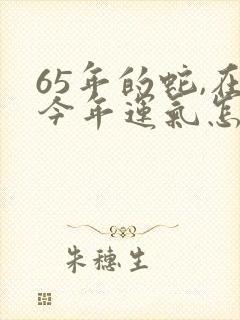 65年的蛇,在
今年运气怎
朱穗生